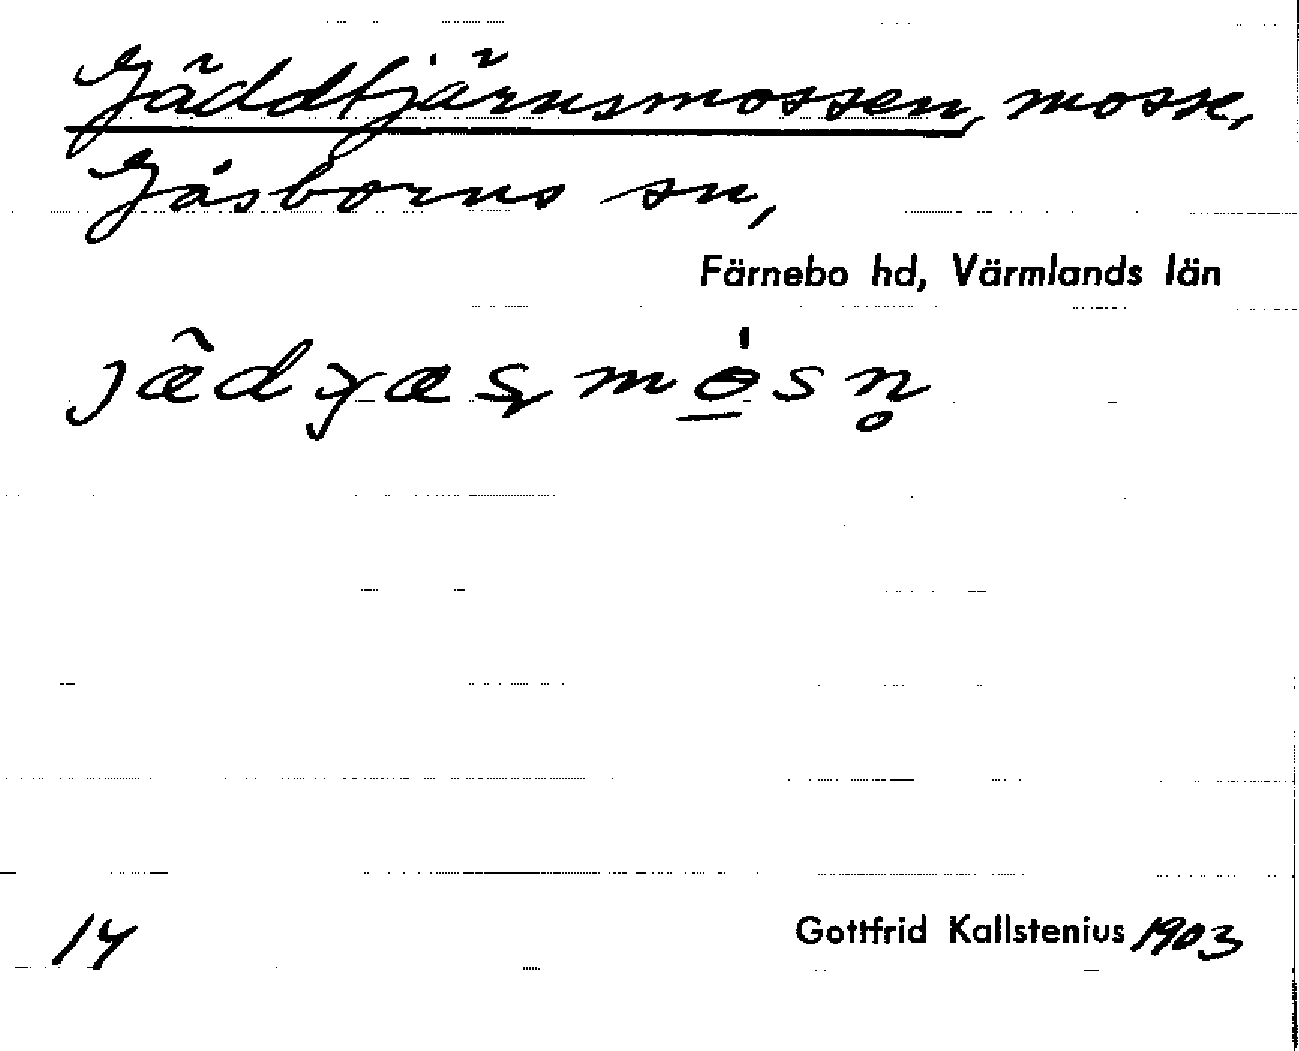 Gäddtjärnsmossen, mosse,
Gåsborns sn,
Färnebo hd, Värmlands län
14
Gottfrid Kallstenius 1903